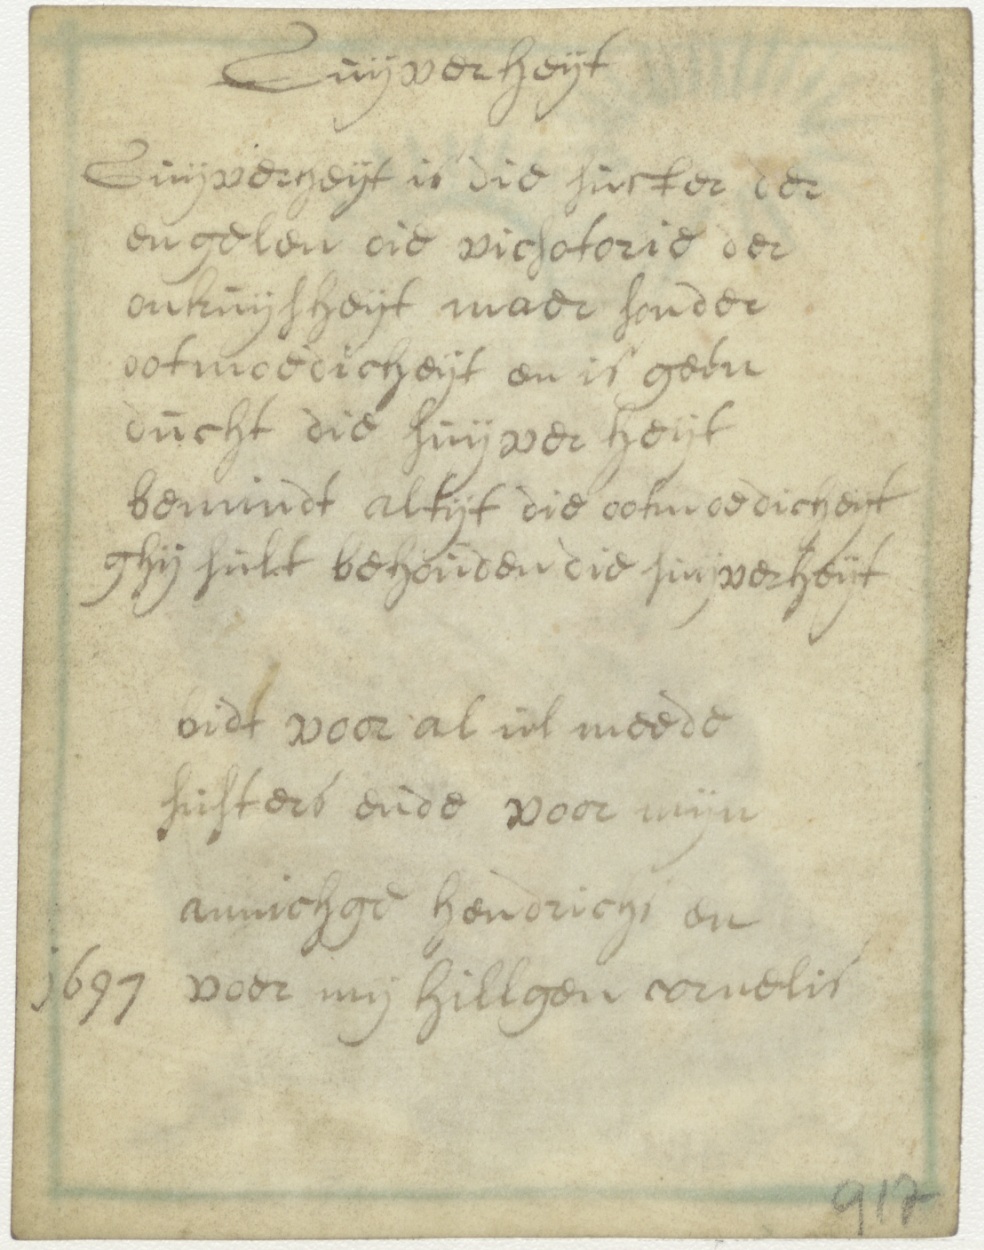 Suijverheijt
Suijverheijt is die suster der
engelen die vichotorie der
onkuijsheijt maer sonder
ootmoedicheijt en is geen
ducht die suijver heijt
bemindt altijt die ootmoedicheijt
ghij sult behouden die suijverheijt
bidt voor al ul meede
susters ende voor mijn
annichge hendrichs en
1697 voer mij hillgen cornelis
917